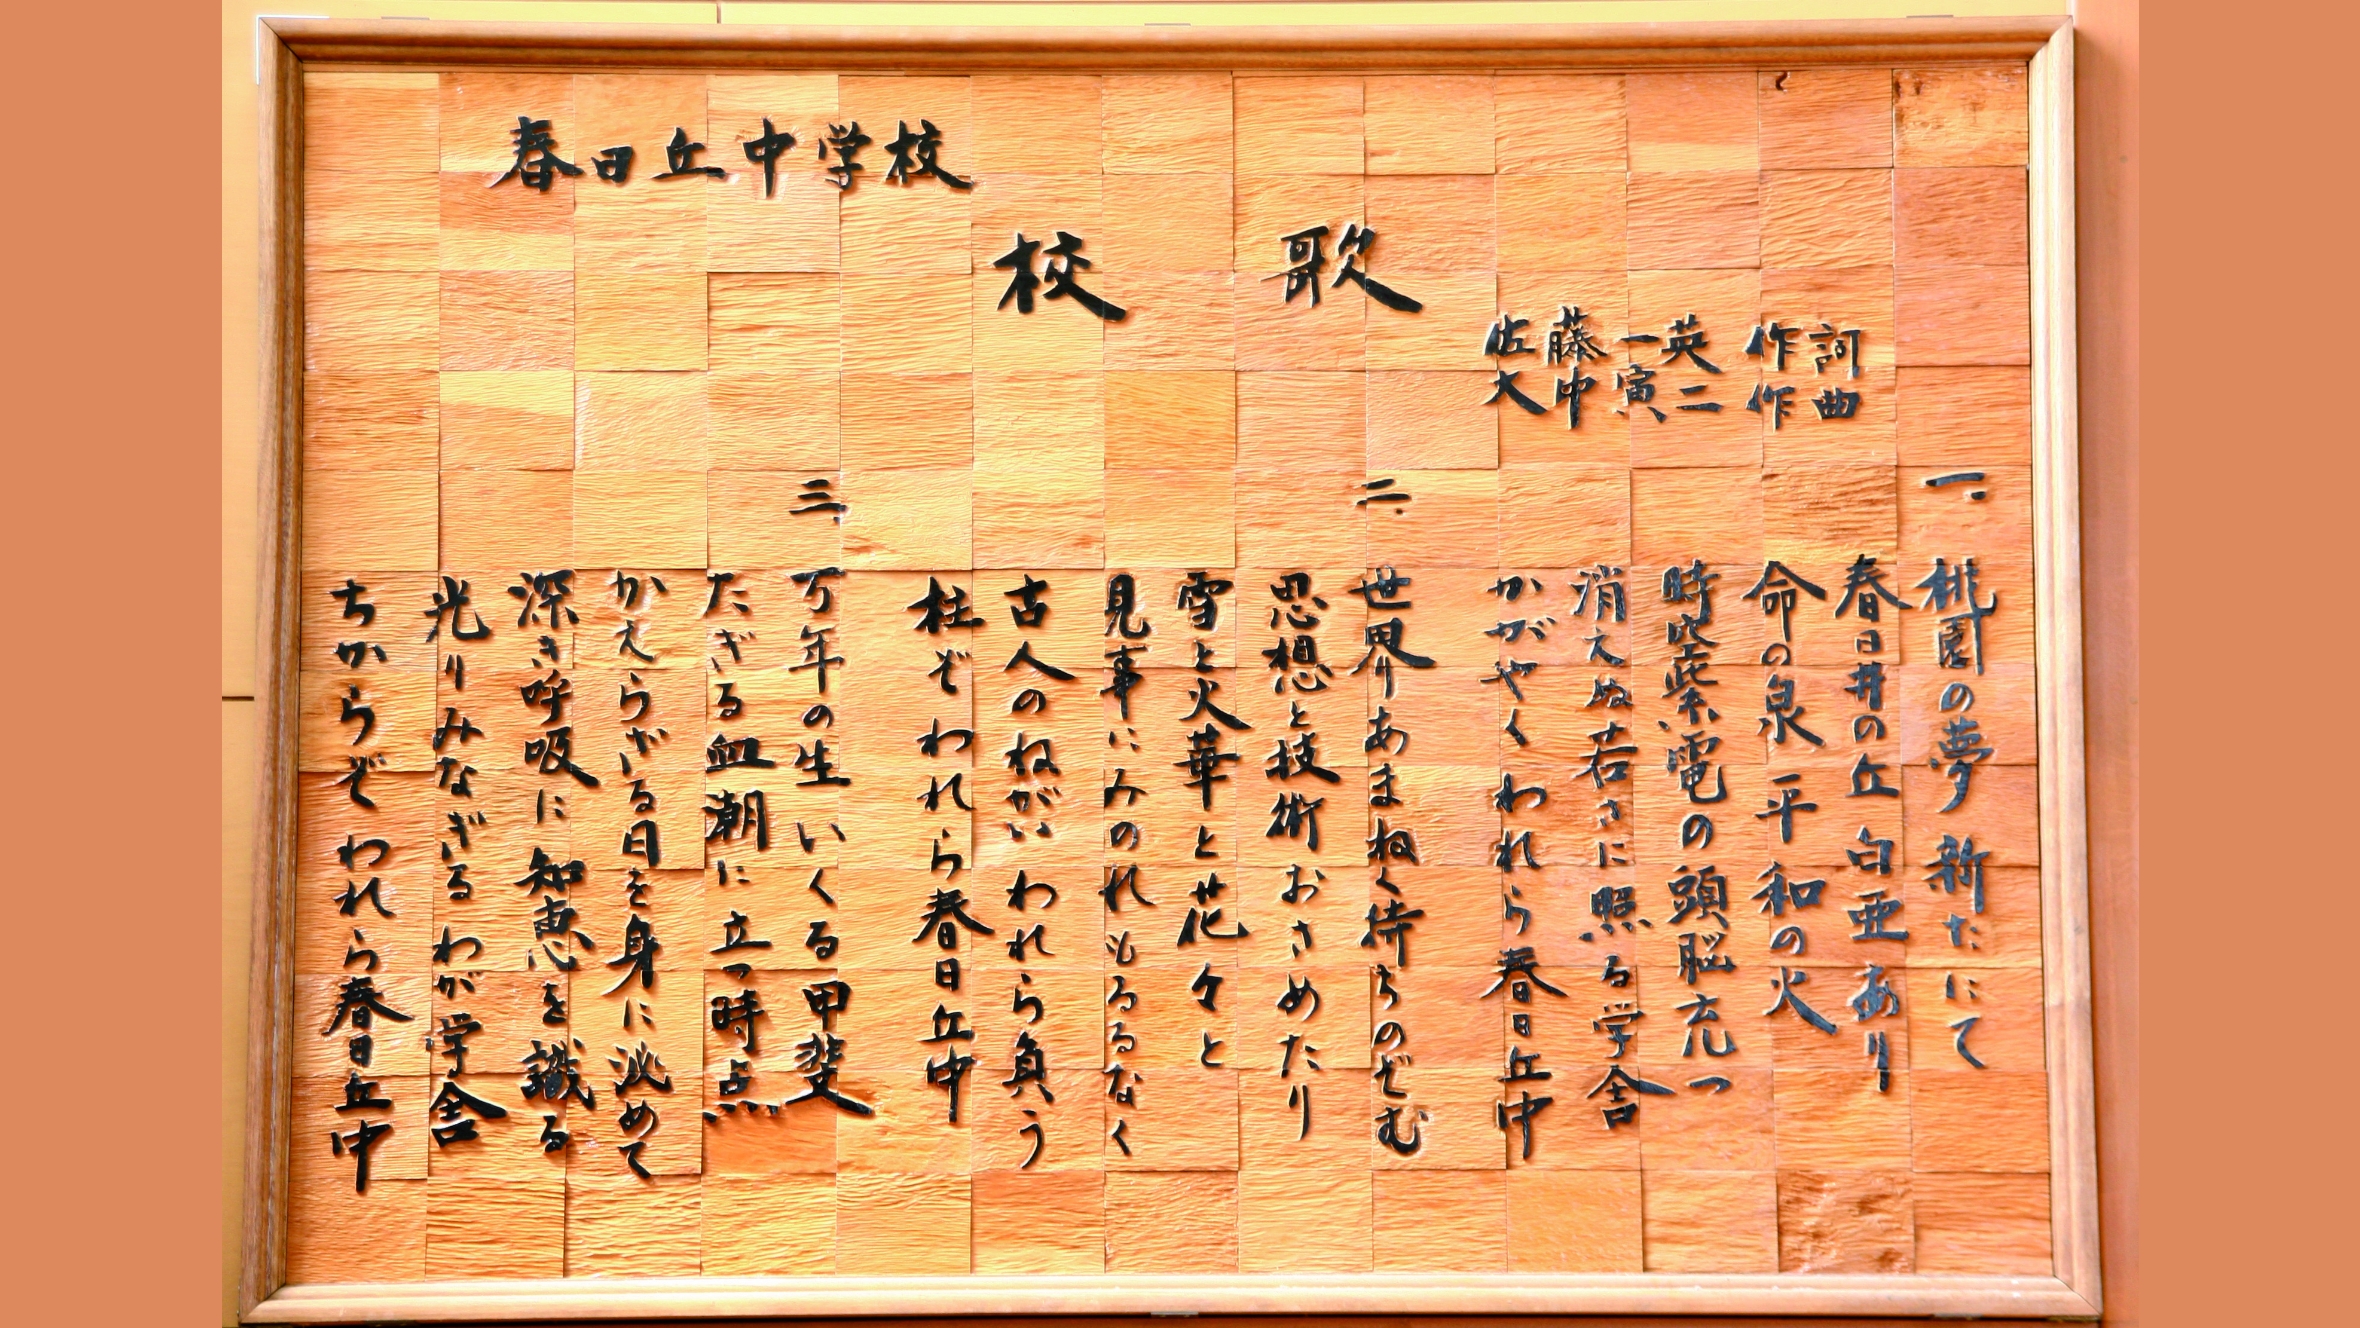 春日丘中学校
校歌
佐藤一英 作詞
大中寅二 作曲
一、
桃園の夢 新たにて
春日井の丘 白亜あり
命の泉 平和の火
時空紫電の頭脳充つ
消えぬ若さに照る学舎
かがやく われら春日丘中
二、
世界あまねく待ちのぞむ
思想と技術おさめたり
雪と火華と花々と
見事にみのれもるるなく
古人のねがい われら負う
柱ぞ われら春日丘中
三、
万年の生 いくる甲斐
たぎる血潮に立つ時点
かえらざる日を身に沁めて
深き呼吸に知恵を識る
光りみなぎる わが学舎
ちからぞ われら春日丘中